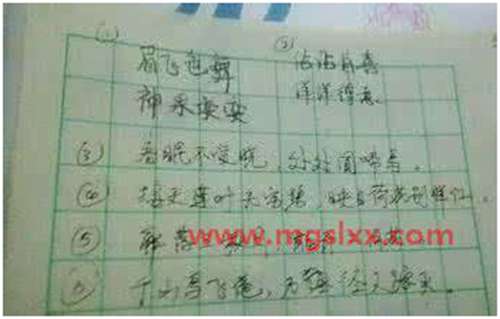 (1) (2)
眉飞色舞 沾沾自喜
神采 洋洋得意
(3) 春眠不觉晓，处处闻啼鸟。
(4) 接天莲叶无穷碧，映日荷花别样红。
(5)
www.mgslxx.com
千山鸟飞绝，万径人踪灭。